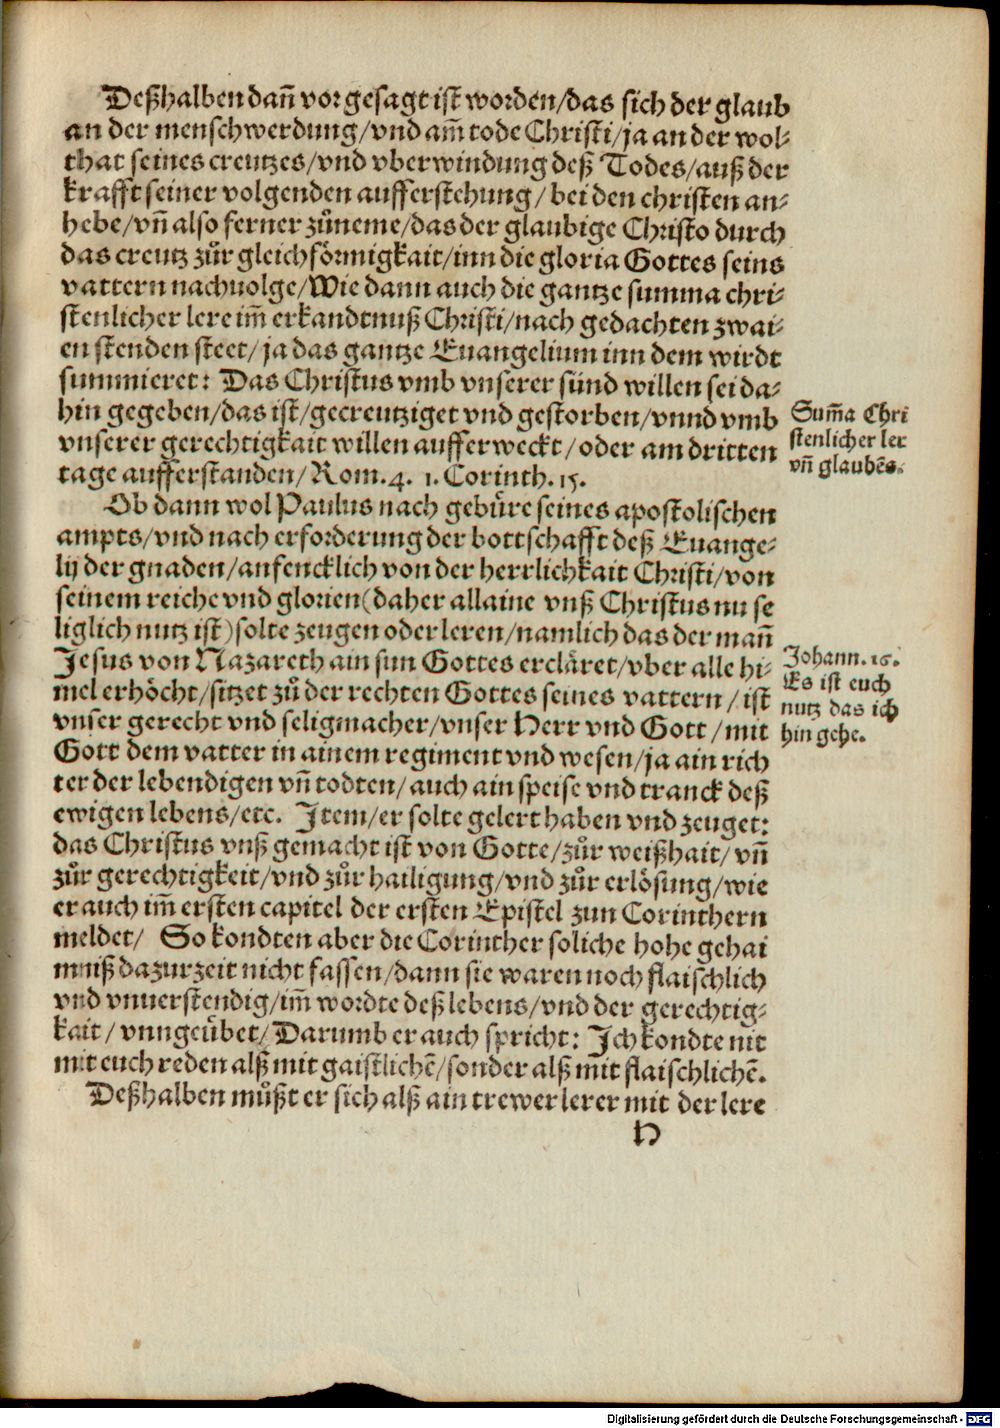 Deßhalben dañ vor gesagt ist worden/das sich der glaub
an der menschwerdung/vnd am̃ tode Christi/ja an der wol-
that seines creutzes/vnd vberwindung deß Todes/auß der
krafft seiner volgenden aufferstehung/bei den christen an-
hebe/vñ also ferner zůneme/das der glaubige Christo durch
das creutz zůr gleichförmigkait/inn die gloria Gottes seins
vattern nachuolge/Wie dann auch die gantze summa chri-
stenlicher lere im̃ erkandtnuß Christi/nach gedachten zwai-
en stenden steet/ja das gantze Euangelium inn dem wirdt
summieret: Das Christus vmb vnserer sünd willen sei da-
hin gegeben/das ist/gecreutziget vnd gestorben/vnnd vmb
vnserer gerechtigkait willen aufferweckt/oder am dritten
tage aufferstanden/Rom.4. 1. Corinth.15.
Sum̃a Chri
stenlicher ler
vñ glaubẽs.
Ob dann wol Paulus nach gebüre seines apostolischen
ampts/vnd nach erforderung der bottschafft deß Euange-
lij der gnaden/anfencklich von der herrlichkait Christi/von
seinem reiche vnd glorien(daher allaine vnß Christus nu se
liglich nutz ist)solte zeugen oder leren/namlich das der mañ
Jesus von Nazareth ain sun Gottes ercläret/vber alle hi-
mel erhöcht/sitzet zů der rechten Gottes seines vattern/ist
vnser gerecht vnd seligmacher/vnser Herr vnd Gott/mit
Gott dem vatter in ainem regiment vnd wesen/ja ain rich
ter der lebendigen vñ todten/auch ain speise vnd tranck deß
ewigen lebens/etc. Item/er solte gelert haben vnd zeuget:
das Christus vnß gemacht ist von Gotte/zůr weißhait/vñ
zůr gerechtigkeit/vnd zůr hailigung/vnd zůr erlösung/wie
er auch im̃ ersten capitel der ersten Epistel zun Corinthern
meldet/ So kondten aber die Corinther soliche hohe gehai
mniß dazurzeit nicht fassen/dann sie waren noch flaischlich
vnd vnuerstendig/im̃ wordte deß lebens/vnd der gerechtig-
kait/vnngeübet/Darumb er auch spricht: Ich kondte nit
mit euch reden alß mit gaistlichẽ/sonder alß mit flaischlichẽ.
Johann.16.
Es ist euch
nutz das ich
hin gehe.
Deßhalben můßt er sich alß ain trewer lerer mit der lere
H
Digitalisierung gefördert durch die Deutsche Forschungsgemeinschaft - DFG